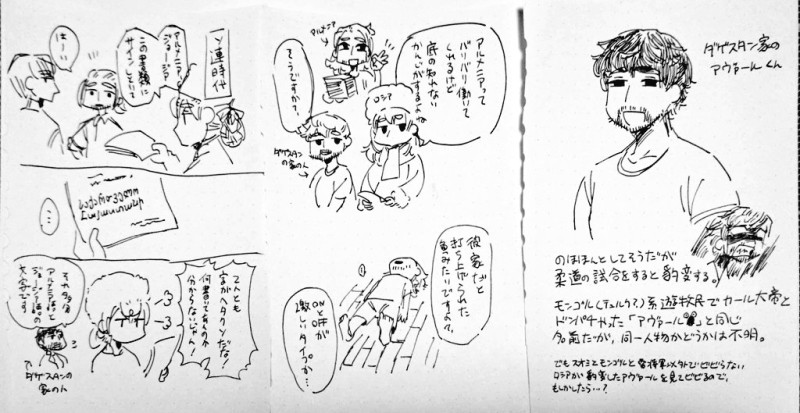 ソ連時代
アルメニア、
ジョージア、
この書類に
サインしといて
はーい
…
字がヘタクソだな!
何書いてあるのか
分からないじゃん
それ多分
アルメニア語と
ジョージア語の
文字です
ダゲスタンの
家の人
アルメニアって
バリバリ働いて
くれるけど
底の知れない
かんじがするよね
アルメニア
ロシア
そうですか?
ダゲスタン
の家の人
彼家だと
打ち上げられた
魚みたいですよ
ONとOFFが
激しいタイプか…
ダゲスタン家の
アヴァールくん
のほほんとしてそうだが
柔道の試合をすると豹変する。
モンゴル(テュルク?)系遊牧民でカール大帝と
ドンパチやった「アヴァール」と同じ
名前だが、同一人物かどうかは不明。
ロシアが豹変したアヴァールを見てビビるので、
もしかしたら…?